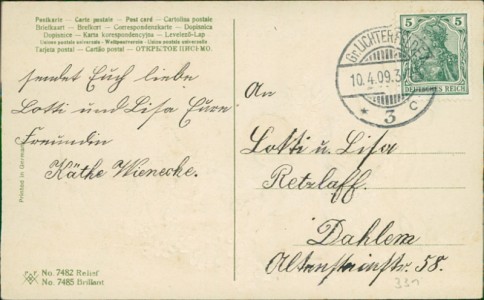 Postkarte — Carte postale — Post card — Cartolina postale
Briefkaart — Brefkort — Correspondenzkarte — Dopisnica
Dopisnice — Karta korespondencyjna — Levelező-Lap
Union postale universelle - Weltpostverein - Unione postale universale
Tarjeta postal — Cartão postal — ОТКРЫТОЕ ПИСЬМО.
sendet Euch liebe
Lotti und Lisa Eure
Freundin
Käthe Wienecke.
Printed in Germany
No. 7482 Relief
No. 7485 Brillant
Gr. LICHTERFELDE
10.4.09.3
* 3 c
5 5
DEUTSCHES REICH
An
Lotti u. Lisa
Retzlaff.
Dahlem
Altensteinstr. 58.
339